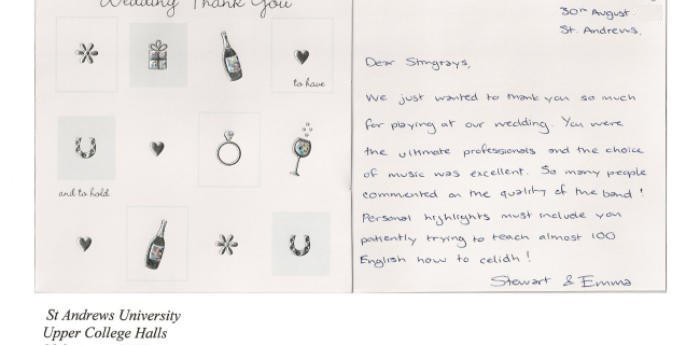 Wedding Thank You
to have
and to hold
30th August
St. Andrews.
Dear Stingrays,
We just wanted to thank you so much
for playing at our wedding. You were
the ultimate professionals and the choice
of music was excellent. So many people
commented on the quality of the band!
Personal highlights must include you
patiently trying to teach almost 100
English how to celidh!
Stewart & Emma
St Andrews University
Upper College Halls